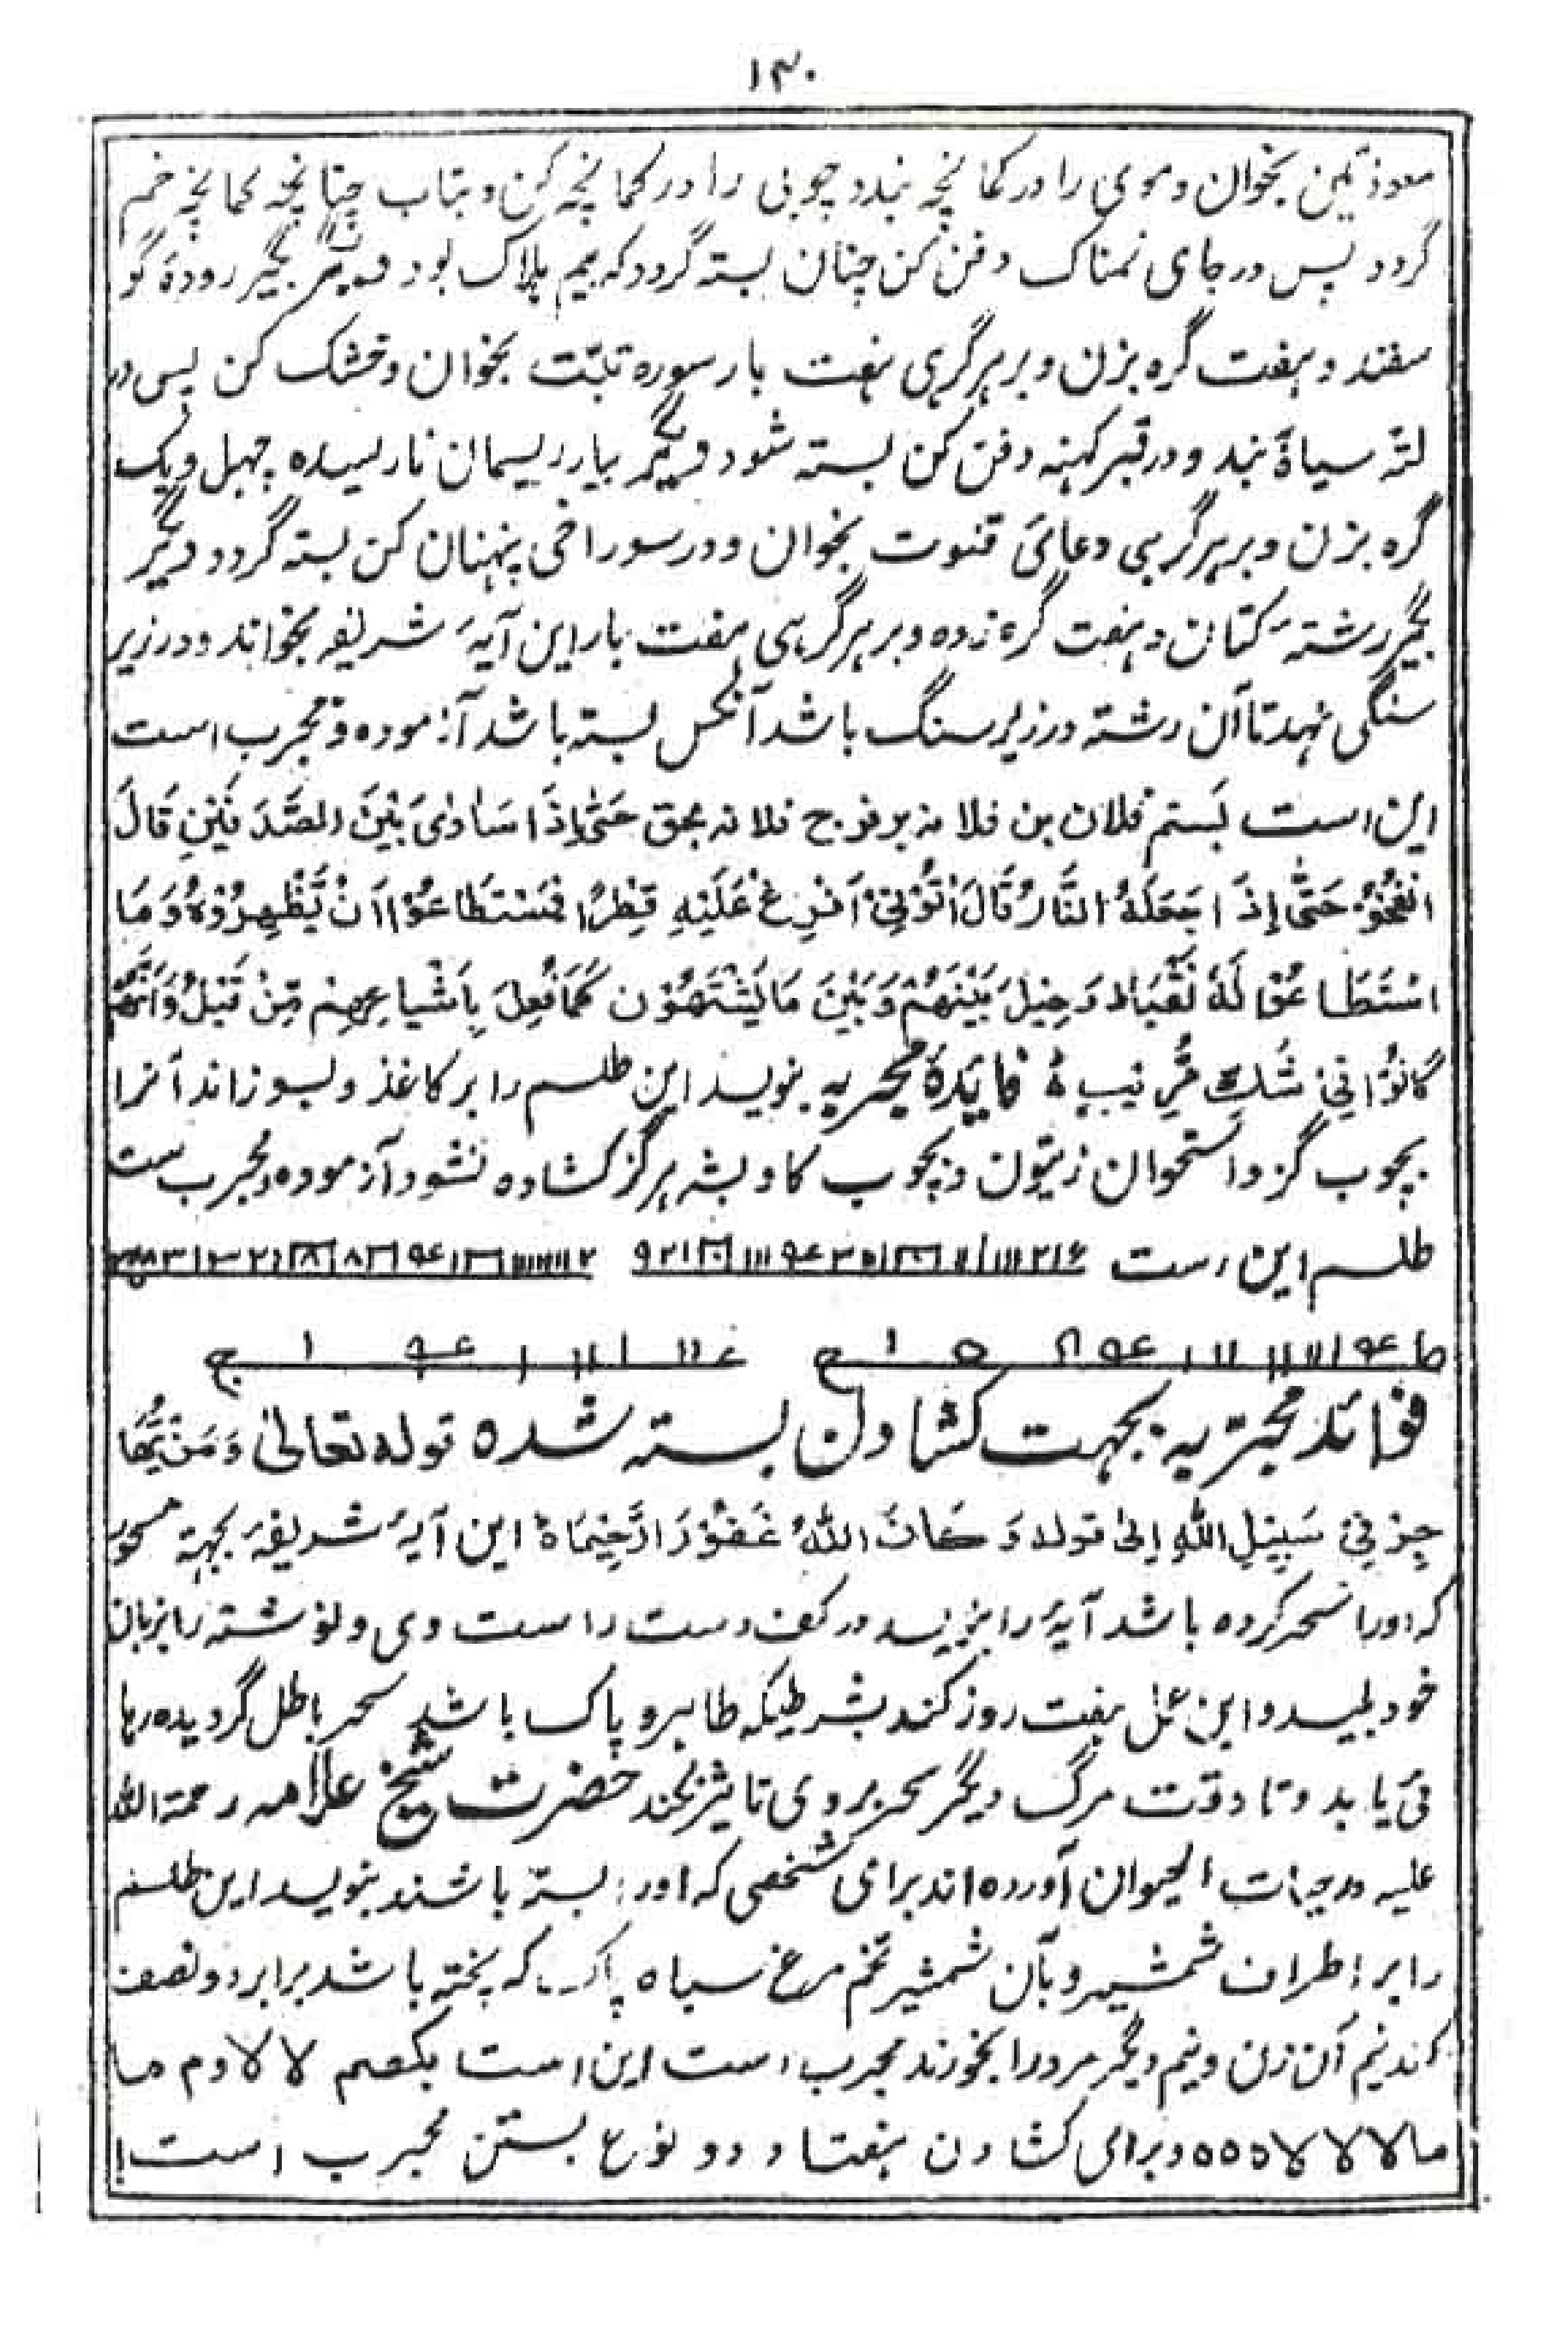 ۱۳۰
معوذتین بخوان و موی را در کمانچه بندد چوبی را در کمانچه کن و بتاب چنانچه کمانچه خم
گردد پس در جای نمناک دفن کن چنان بسته گردد که بیم هلاک بود دیگر بگیر روده گو
سفند و هفت گره بزن و بر هر گرهی هفت بار سوره تبّت بخوان و خشک کن پس در
لته سیاه بند و در قبر کهنه دفن کن بسته شود دیگر بیارد ریسمان نارسیده چهل و یک
گره بزن و بر هر گرهی دعائی قنوت بخوان و در سوراخی پنهان کن بسته گردد دیگر
بگیر رشتهٔ کتان و هفت گره زده و بر هر گرهی هفت بار این آیهٔ شریفه بخواند و در زیر
سنگی نهد تا آن رشته در زیر سنگ باشد آنکس بسته باشد آزموده و مجرب است
این است بستم فلان بن فلانه بر فرج فلانه بحق حَتّٰی اِذَا سَاوٰیٰ بَیْنَ الصَّدَفَیْنِ قَالَ
انْفُخُوْا حَتّٰی اِذَا جَعَلَهُ النَّارُ قَالَ اٰتُوْنِیْ اُفْرِغْ عَلَیْهِ قِطْرًا فَمَسْتَطَاعُوْا اَنْ یَّظْهِرُوْهُ وَمَا
اسْتَطَاعُوْا لَهٗ نَقْبًا ط وَحِیْلَ بَیْنَهُمْ وَبَیْنَ مَا یَشْتَهُوْن کَمَا فُعِلَ بِاَشْیَاعِهِمْ مِّنْ قَبْلُ وَاَنَّهُمْ
کَانُوْا فِیْ شَكٍّ مُّرِیْبٍ ہ فایدهٔ مجربه بنویسد این طلسم را بر کاغذ و بسوزاند آنرا
بچوب گز و استخوان زیتون و بچوب کاو بشه هرگز کشاده نشود آزموده و مجرب ست
طلسم این است
فوائد مجرّبه بجهت کشادن بسته شده قوله تعالیٰ وَمَنْ یُّهَا
جِرْ فِیْ سَبِیْلِ اللهِ اِلیٰ قوله وَكَانَ اللهُ غَفُوْرَارَّحِیْمَاہ این آیهٔ شریفهٔ بجهته مسحور
که اورا سحر کرده باشد آیهٔ را بنویسد در کف دست راست وی و نوشته را بزبان
خود بلیسد و این عمل هفت روز کند بشرطیکه طاهر و پاک باشد سحر باطل گردیده رها
ئی یابد و تا وقت مرگ دیگر سحر بر وی تاثیر نکند حضرت شیخ علامه رحمة الله
علیه در حیات الحیوان آورده اند برای شخصی که اورا بسته باشند بنویسد این طلسم
را بر اطراف شمشیر و بآن شمشیر تخم مرغ سیاه پاک که پخته باشد برابر دو نصف
کند نیم آن زن و نیم دیگر مرد را بخورند مجرب است این است بکصم لا لا و م ما
ما لا لا لا لا ه ه ه و برای کشادن هفتاد و دو نوع بستن مجرب است